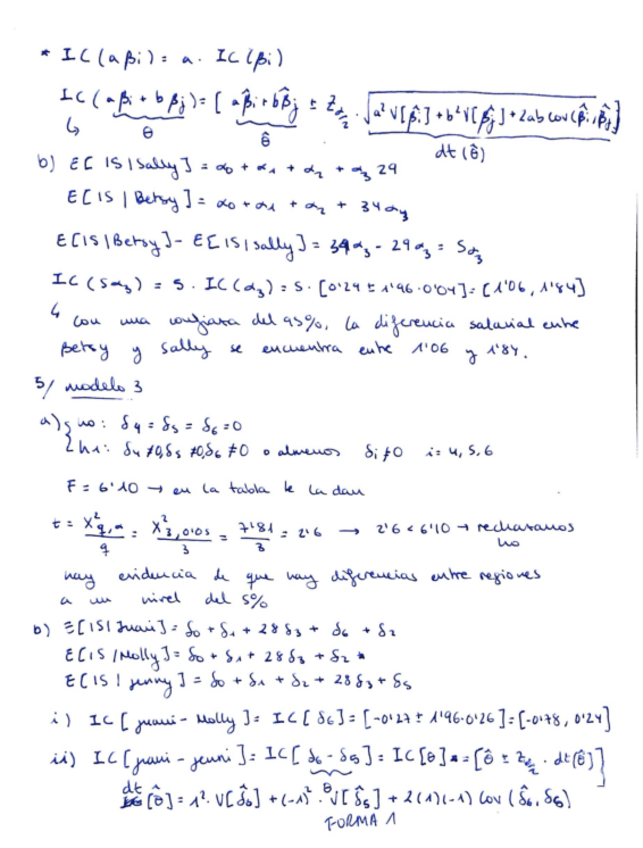 * IC(aβi) = a. IC(βi)
IC(aβi + bβj) = [aβ̂i + bβ̂j ± Zα/2 . √(a²V[β̂i] + b²V[β̂j] + 2ab cov(β̂i, β̂j))]
↳ θ θ̂ dt(θ̂)
b) E[IS|Sally] = α0 + α1 + α2 + α3 29
E[IS|Betsy] = α0 + α1 + α2 + 34α3
E[IS|Betsy] - E[IS|Sally] = 34α3 - 29α3 = 5α3
IC(5α3) = 5 . IC(α3) = 5 . [0'29 ± 1'96·0'04] = [1'06, 1'84]
↳ con una confianza del 95%, la diferencia salarial entre
Betsy y Sally se encuentra entre 1'06 y 1'84.
5/ modelo 3
a) { H0: δ4 = δ5 = δ6 = 0
{ H1: δ4 ≠ 0, δ5 ≠ 0, δ6 ≠ 0 o almenos δi ≠ 0 i = 4, 5, 6
F = 6'10 → en la tabla te la dan
t = X²q,α / q = X²3,0'05 / 3 = 7'81 / 3 = 2'6 → 2'6 < 6'10 → rechazamos H0
hay evidencia de que hay diferencias entre regiones
a un nivel del 5%
b) E[IS|Juani] = δ0 + δ1 + 28δ3 + δ6 + δ2
E[IS/Molly] = δ0 + δ1 + 28δ3 + δ2
E[IS|Jenny] = δ0 + δ1 + δ2 + 28δ3 + δ5
i) IC[juani - Molly] = IC[δ6] = [-0'27 ± 1'96·0'26] = [-0'78, 0'24]
ii) IC[juani - jenni] = IC[δ6 - δ5] = IC[θ] = [θ̂ ± Zα/2 . dt(θ̂)]
θ
dt[θ̂] = 1². V[δ̂6] + (-1)² . V[δ̂5] + 2(1)(-1) Cov(δ̂6, δ̂5)
FORMA 1